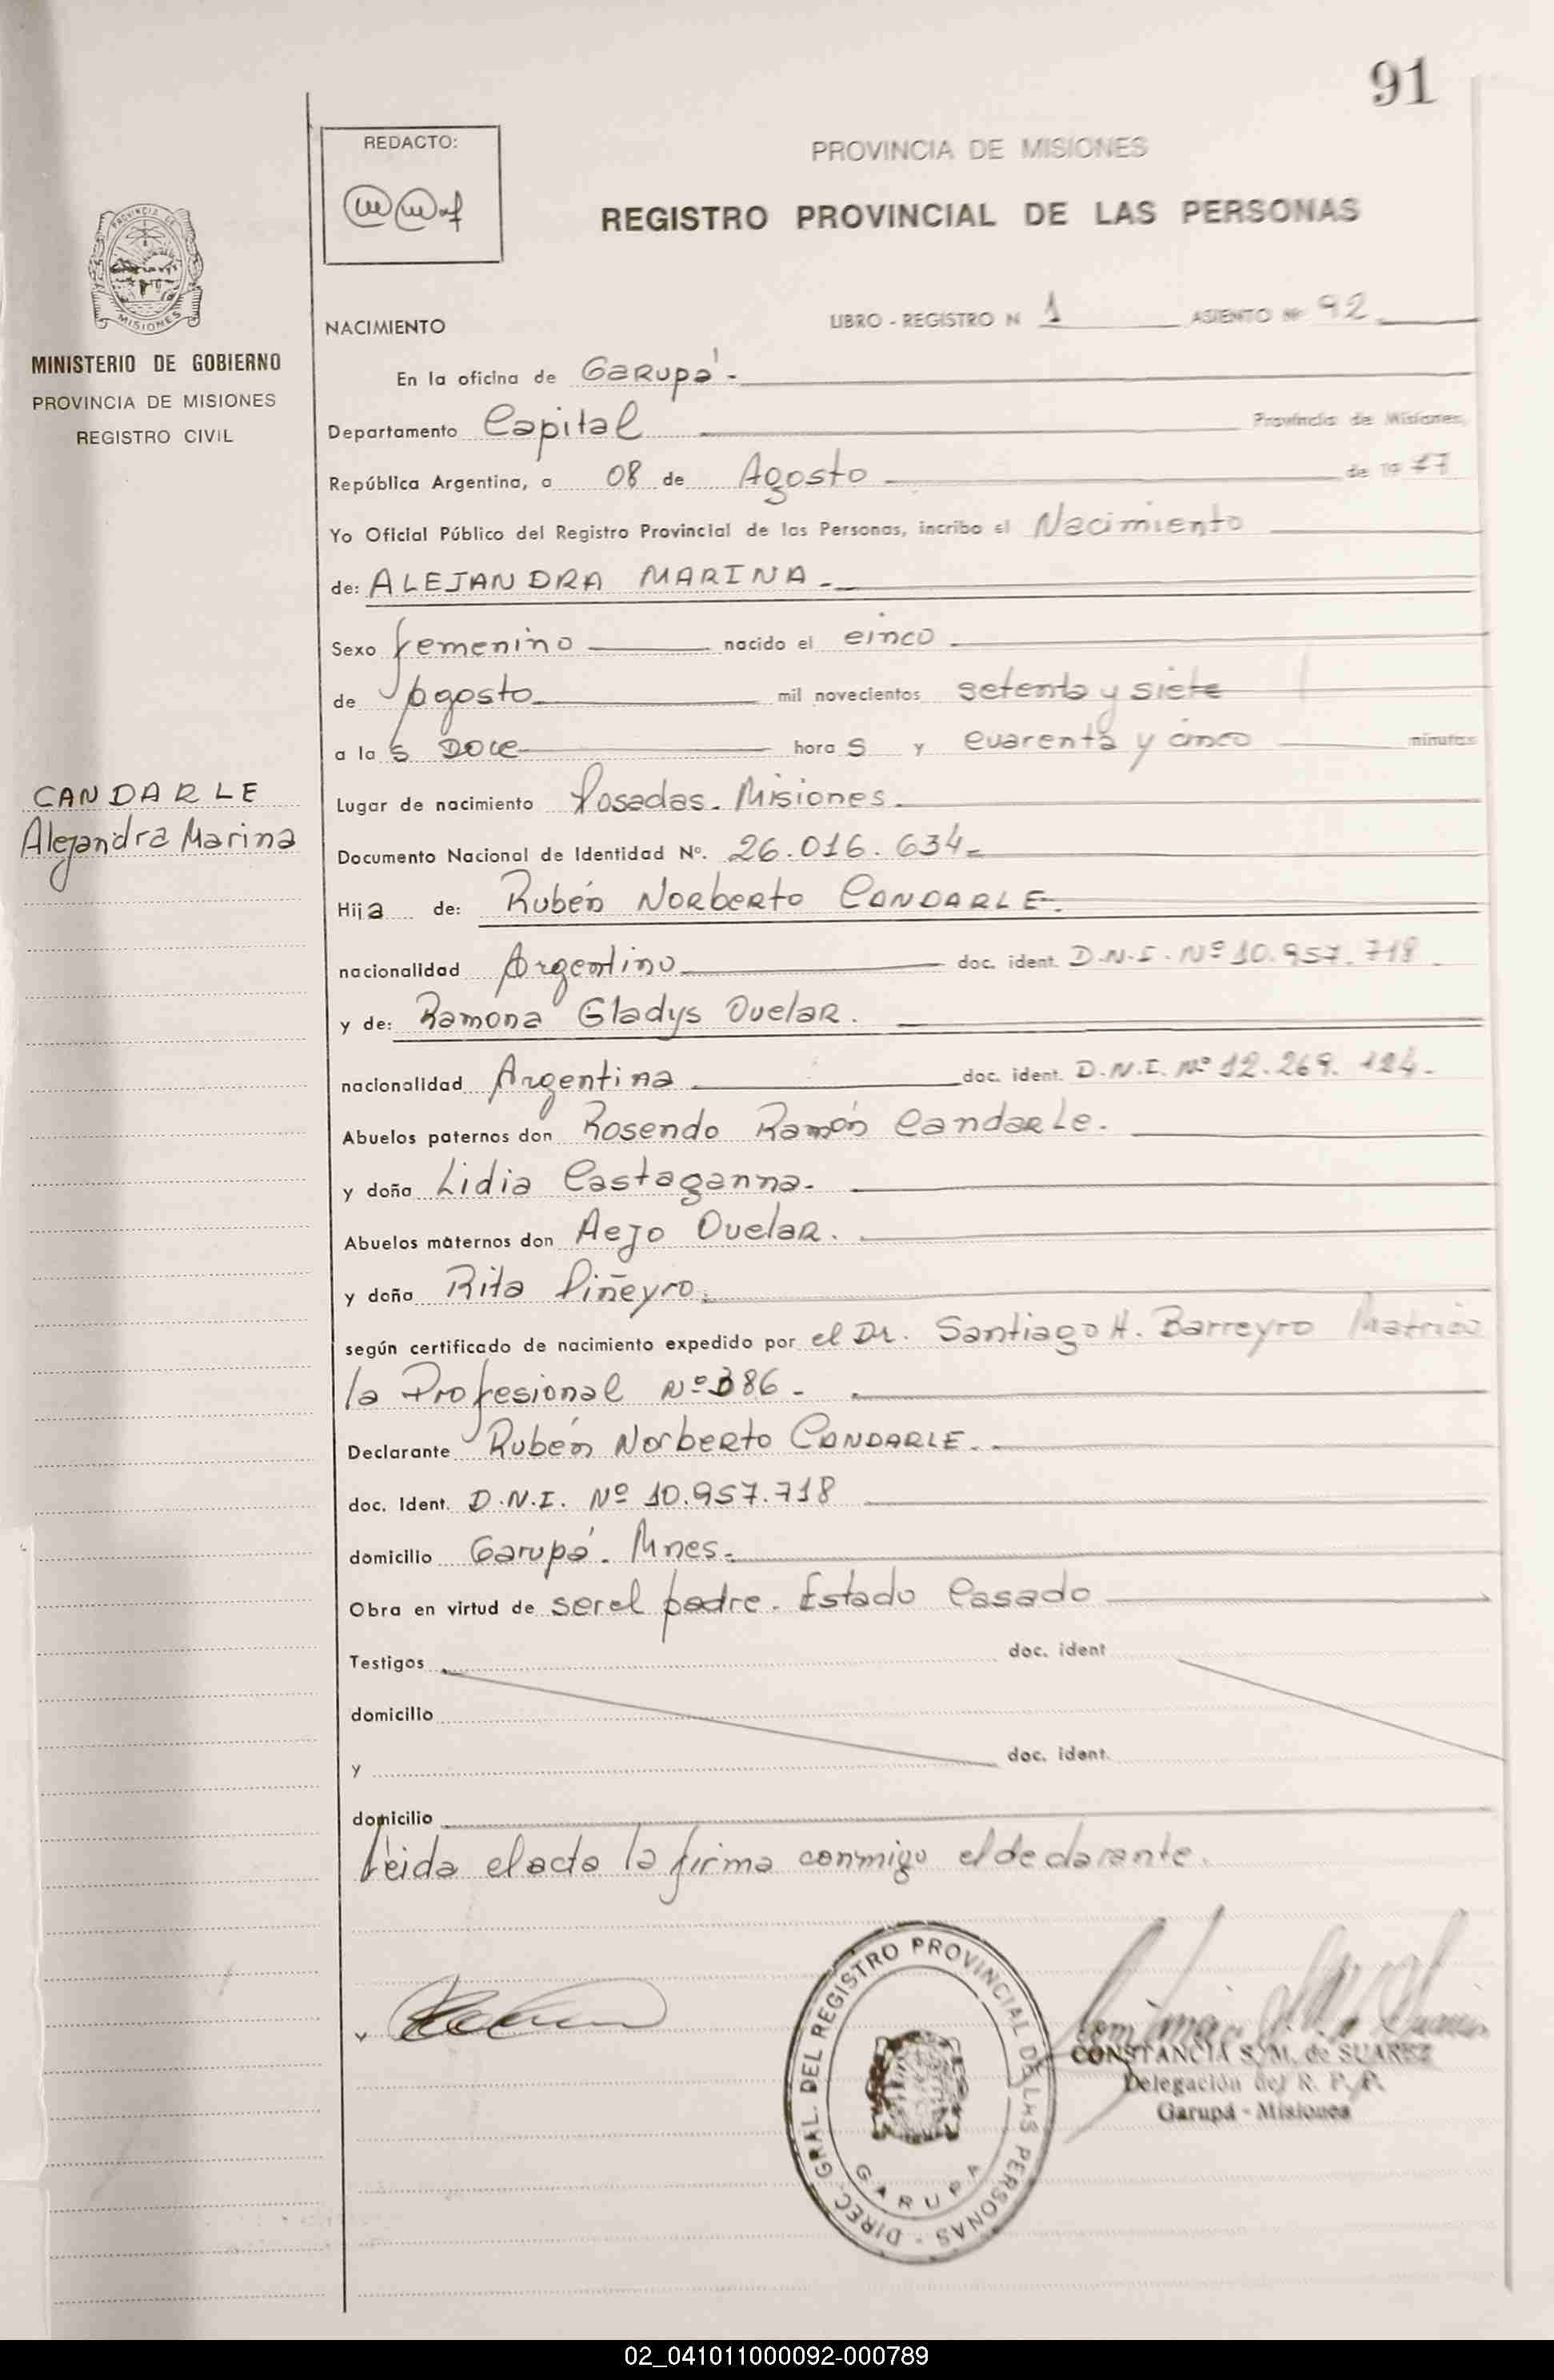 91
REDACTO:
PROVINCIA DE MISIONES
REGISTRO PROVINCIAL DE LAS PERSONAS
PROVINCIA DE
MISIONES
MINISTERIO DE GOBIERNO
PROVINCIA DE MISIONES
REGISTRO CIVIL
CANDARLE
Alejandra Marina
NACIMIENTO
LIBRO - REGISTRO N 1 ASIENTO Nº 92
En la oficina de Garupá.
Departamento Capital Provincia de Misiones,
República Argentina, a 08 de Agosto de 1977
Yo Oficial Público del Registro Provincial de las Personas, incribo el Nacimiento
de: ALEJANDRA MARINA.
Sexo femenino nacido el cinco
de agosto mil novecientos setenta y siete
a la s DOCE hora s y cuarenta y cinco minutos
Lugar de nacimiento Posadas. Misiones.
Documento Nacional de Identidad Nº. 26.016.634
Hija de: Rubén Norberto CANDARLE.
nacionalidad Argentino doc. ident. D.N.I. Nº 10.957.718
y de: Ramona Gladys Ovelar.
nacionalidad Argentina doc. ident. D.N.I. Nº 12.269.124.
Abuelos paternos don Rosendo Ramón Candarle.
y doña Lidia Castaganna.
Abuelos maternos don Aejo Ovelar.
y doña Rita Piñeyro.
según certificado de nacimiento expedido por el Dr. Santiago H. Barreyro Matrícu
la Profesional Nº 386.
Declarante Rubén Norberto CANDARLE.
doc. Ident. D.N.I. Nº 10.957.718
domicilio Garupá. Mnes.
Obra en virtud de ser el padre. Estado Casado
Testigos doc. ident
domicilio
y doc. ident.
domicilio
Leida el acta la firma conmigo el declarante.
DIREC. GRAL. DEL REGISTRO PROVINCIAL DE LAS PERSONAS -
GARUPA
CONSTANCIA S. M. de SUAREZ
Delegación del R. P. P.
Garupá - Misiones
02_041011000092-000789